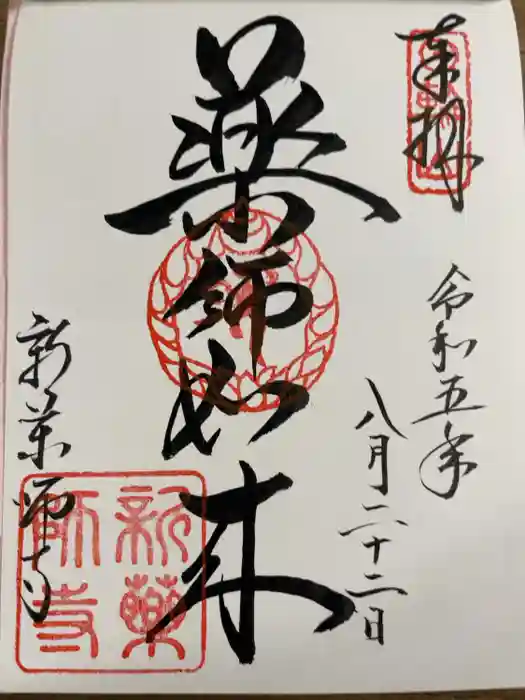 奉拝
令和五年
八月二十二日
薬師如来
新薬師寺
新藥師寺